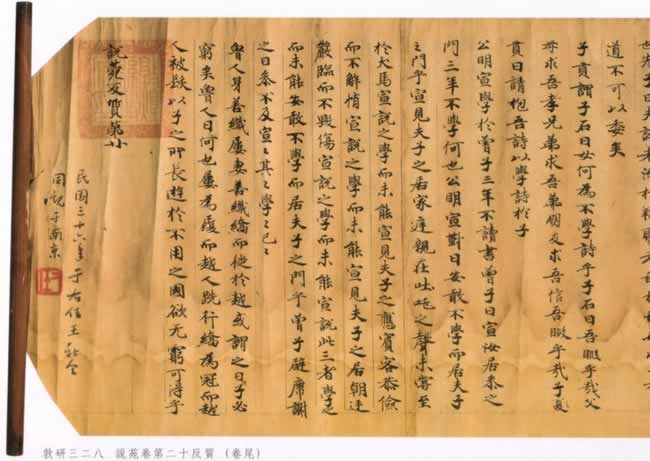 道不可以委矣
子貢謂子石曰女何為不學詩乎子石曰吾暇乎哉父
母求吾孝兄弟求吾弟朋友求吾信吾暇乎哉子
貢曰請抱吾詩以學詩於子
公明宣學於曾子三年不讀書曾子曰宣汝居叅之
門三年不學何也公明宣對曰安敢不學而居夫子
之門乎宣見夫子之居家庭親在吒吒之聲未嘗至
於犬馬宣說之學而未能宣見夫子之應賓客恭儉
而不解惰宣說之學而未能宣見夫子之居朝廷
嚴臨而不毀傷宣說之學而未能宣說此三者學之
而未能安敢不學而居夫子之門乎曾子避席謝
之曰叅不及宣〻其〻學〻已〻
魯人身善織屨妻善織縞而徙於越或謂之曰子必
窮矣魯人曰何也屨為履而越人跣行縞為冠而越
人被髮以子之所長遊於不用之國欲无窮可得乎
說苑反質第廿
民國三十六年于右任王新令
同觀于南京
敦研三二八 說苑卷第二十反質（卷尾）